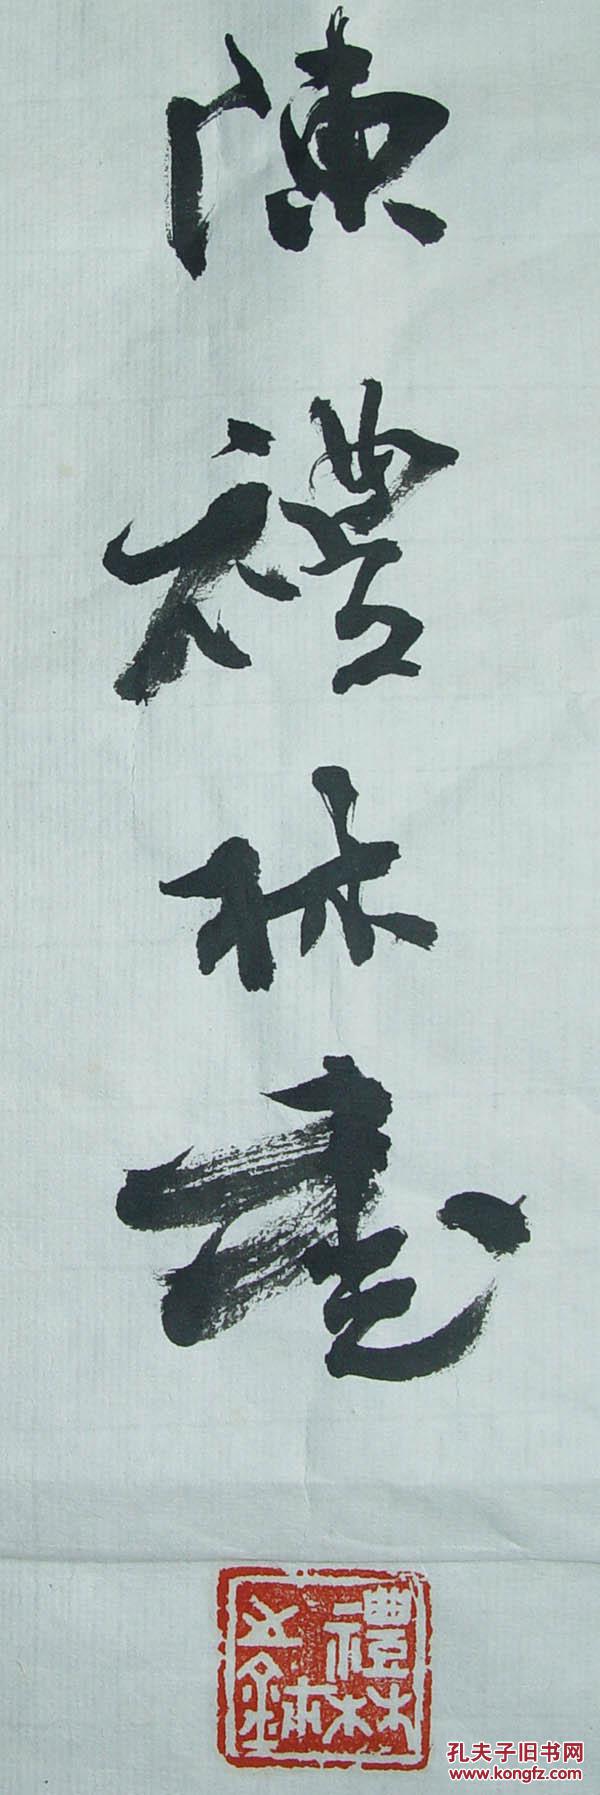 陳禮林書
禮林
孔夫子旧书网
www.kongfz.com